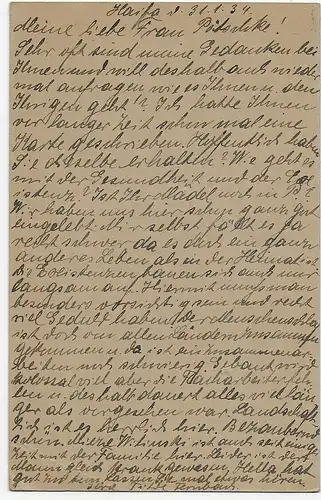 Haifa d. 31.1.34.
Meine liebe Frau Pötschke!
Sehr oft sind meine Gedanken bei
Ihnen und will deshalb mal wieder
mal anfragen wie es Ihnen u. den
Ihrigen geht!? Ich hatte Ihnen
vor langer Zeit schon mal eine
Karte geschrieben. Hoffentlich haben
Sie dieselbe erhalten? Wie geht es
mit der Gesundheit und der Exi
stenz? Ist Ihr Mädel noch in B?
Wir haben uns hier schon ganz gut
eingelebt. Mir selbst fällt es ja
recht schwer da es doch ein ganz
anderes Leben als in der Heimat ist
die Existenzen bauen sich auch nur
langsam auf. Hier mit muss man
besonders vorsichtig sein und recht
viel Geduld haben. Der Menschenschlag
ist dort von allen Ländern zusammen
gekommen u. da ist ein zusammenar
beiten noch schwierig. Gebaut wird
kolossal viel aber die Facharbeiter feh
len u. deshalb dauert alles viel län
ger als vorgesehen war. Landschaft
lich ist es herrlich hier. Bezaubernd
schön. ist auch seit einiger
Zeit mit der Familie hier. Leider ist der
gleich krank gewesen. Hella hat
gut und mal etwas hören.
Ihre